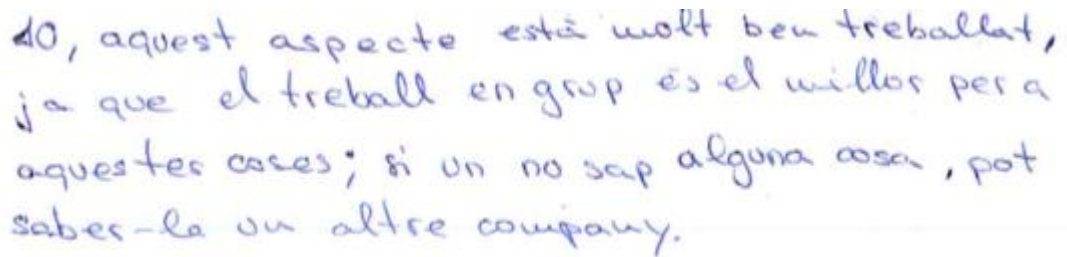 10, aquest aspecte està molt ben treballat,
ja que el treball en grup és el millor per a
aquestes coses; si un no sap alguna cosa, pot
saber-la un altre company.